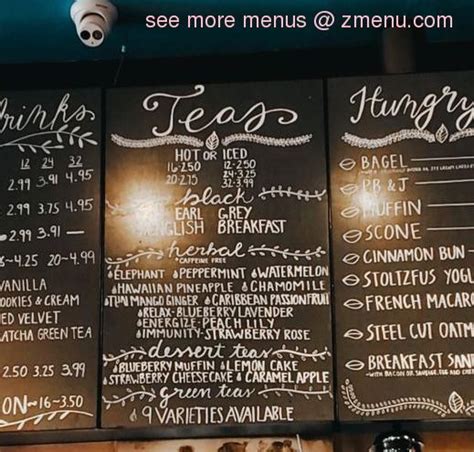 see more menus @ zmenu.com
Drinks
12 24 32
2.99 3.91 4.95
2.99 3.75 4.95
2.99 3.91 —
~4.25 20~4.99
VANILLA
COOKIES & CREAM
RED VELVET
MATCHA GREEN TEA
2.50 3.25 3.99
ON~16~3.50
Teas
HOT OR ICED
16-2.50 12-2.50
20-2.75 24-3.25
32-3.99
black
EARL GREY
ENGLISH BREAKFAST
herbal
CAFFEINE FREE
ELEPHANT PEPPERMINT WATERMELON
HAWAIIAN PINEAPPLE CHAMOMILE
THAI MANGO GINGER CARIBBEAN PASSIONFRUIT
RELAX-BLUEBERRY LAVENDER
ENERGIZE-PEACH LILY
IMMUNITY-STRAWBERRY ROSE
dessert teas
BLUEBERRY MUFFIN LEMON CAKE
STRAWBERRY CHEESECAKE CARAMEL APPLE
green teas
9 VARIETIES AVAILABLE
Hungry
BAGEL
PB & J
MUFFIN
SCONE
CINNAMON BUN -
STOLTZFUS YOG
FRENCH MACAR
STEEL CUT OATM
BREAKFAST SAN
-WITH BACON OR SAUSAGE, EGG AND CHEE